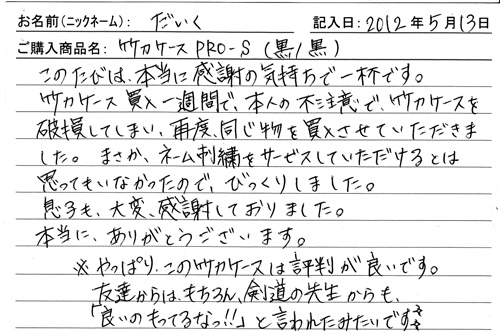 お名前(ニックネーム): だいく 記入日: 2012年5月13日
ご購入商品名: 竹刀ケース PRO-S (黒/黒)
このたびは、本当に感謝の気持ちで一杯です。
竹刀ケース買入一週間で、本人の不注意で、竹刀ケースを
破損してしまい、再度、同じ物を買入させていただきま
した。まさか、ネーム刺繍をサービスしていただけるとは
思ってもいなかったので、びっくりしました。
息子も、大変、感謝しておりました。
本当に、ありがとうございます。
※やっぱり、この竹刀ケースは評判が良いです。
友達からは、もちろん、剣道の先生からも、
「良いのもってるなっ!!」と言われたみたいです